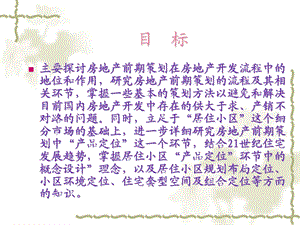 目 标
主要探讨房地产前期策划在房地产开发流程中的
地位和作用，研究房地产前期策划的流程及其相
关环节，掌握一些基本的策划方法以避免和解决
目前国内房地产开发中存在的供大于求、产销不
对路的问题。同时，立足于“居住小区”这个细
分市场的基础上，进一步详细研究房地产前期策
划中“产品定位”这一个环节，结合21世纪住宅
发展趋势，掌握居住小区“产品定位”环节中的
概念设计”理念，以及居住小区规划布局定位、
小区环境定位、住宅套型空间及组合定位等方面
的知识。